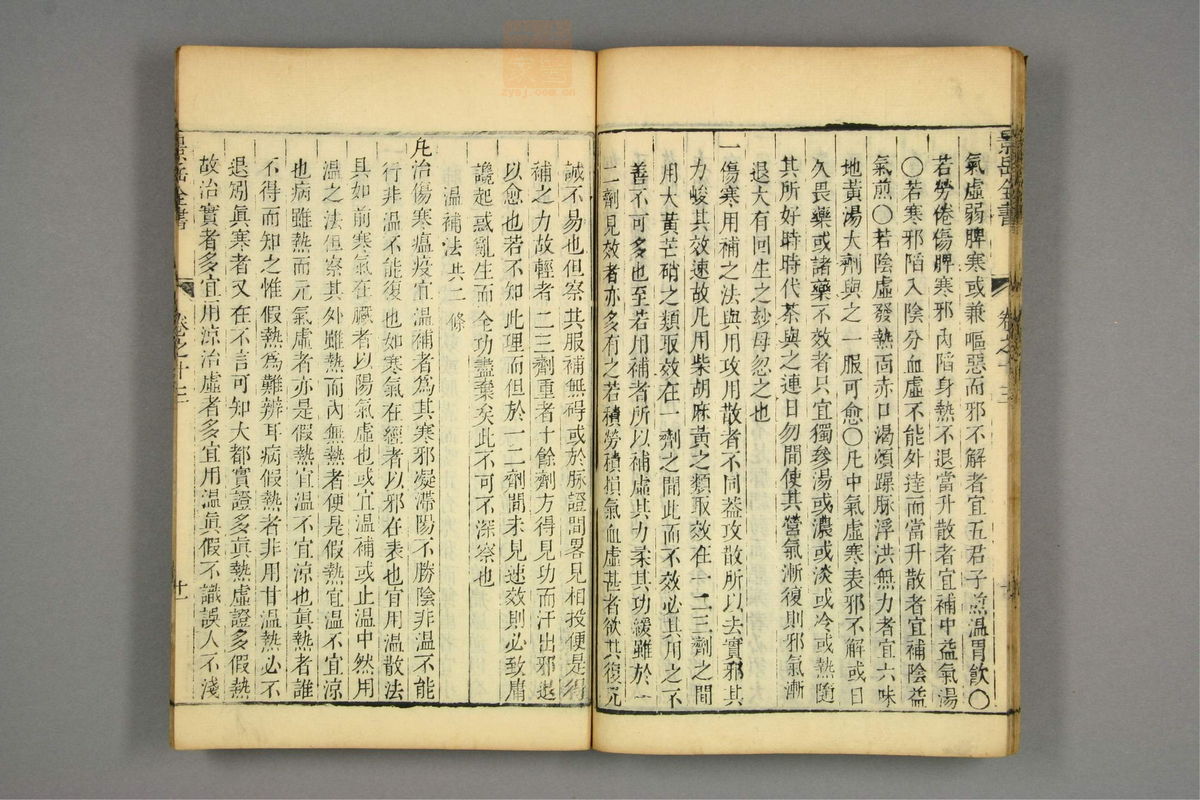 景岳全書 卷之十三
氣虛弱脾寒或兼嘔惡而邪不解者宜五君子煎溫胃飲〇
若勞倦傷脾寒邪內陷身熱不退當升散者宜補中益氣湯
〇若寒邪陷入陰分血虛不能外達而當升散者宜補陰益
氣煎〇若陰虛發熱面赤口渴煩躁脉浮洪無力者宜六味
地黃湯大劑與之一服可愈〇凡中氣虛寒表邪不解或日
久畏藥或諸藥不效者只宜獨參湯或濃或淡或冷或熱隨
其所好時時代茶與之連日勿間使其營氣漸復則邪氣漸
退大有回生之玅毋忽之也
一傷寒用補之法與用攻用散者不同葢攻散所以去實邪其
力峻其效速故凡用柴胡麻黃之類取效在一二三劑之間
用大黃芒硝之類取效在一劑之間此而不效必其用之不
善不可多也至若用補者所以補虛其力柔其功緩雖於一
二劑見效者亦多有之若積勞積損氣血虛甚者欲其復元
誠不易也但察其服補無碍或於脉證間畧見相投便是得
補之力故輕者二三劑重者十餘劑方得見功而汗出邪退
以愈也若不知此理而但於一二劑間未見速效則必致庸
讒起惑亂生而全功盡棄矣此不可不深察也
溫補法 共二條
凡治傷寒瘟疫宜溫補者為其寒邪凝滯陽不勝陰非溫不能
行非溫不能復也如寒氣在經者以邪在表也宜用溫散法
具如前寒氣在臟者以陽氣虛也或宜溫補或止溫中然用
溫之法但察其外雖熱而內無熱者便是假熱宜溫不宜涼
也病雖熱而元氣虛者亦是假熱宜溫不宜涼也眞熱者誰
不得而知之惟假熱為難辨耳病假熱者非用甘溫熱必不
退矧眞寒者又在不言可知大都實證多眞熱虛證多假熱
故治實者多宜用涼治虛者多宜用溫眞假不識誤人不淺
景岳全書 卷之十三 十一
zysj.com.cn